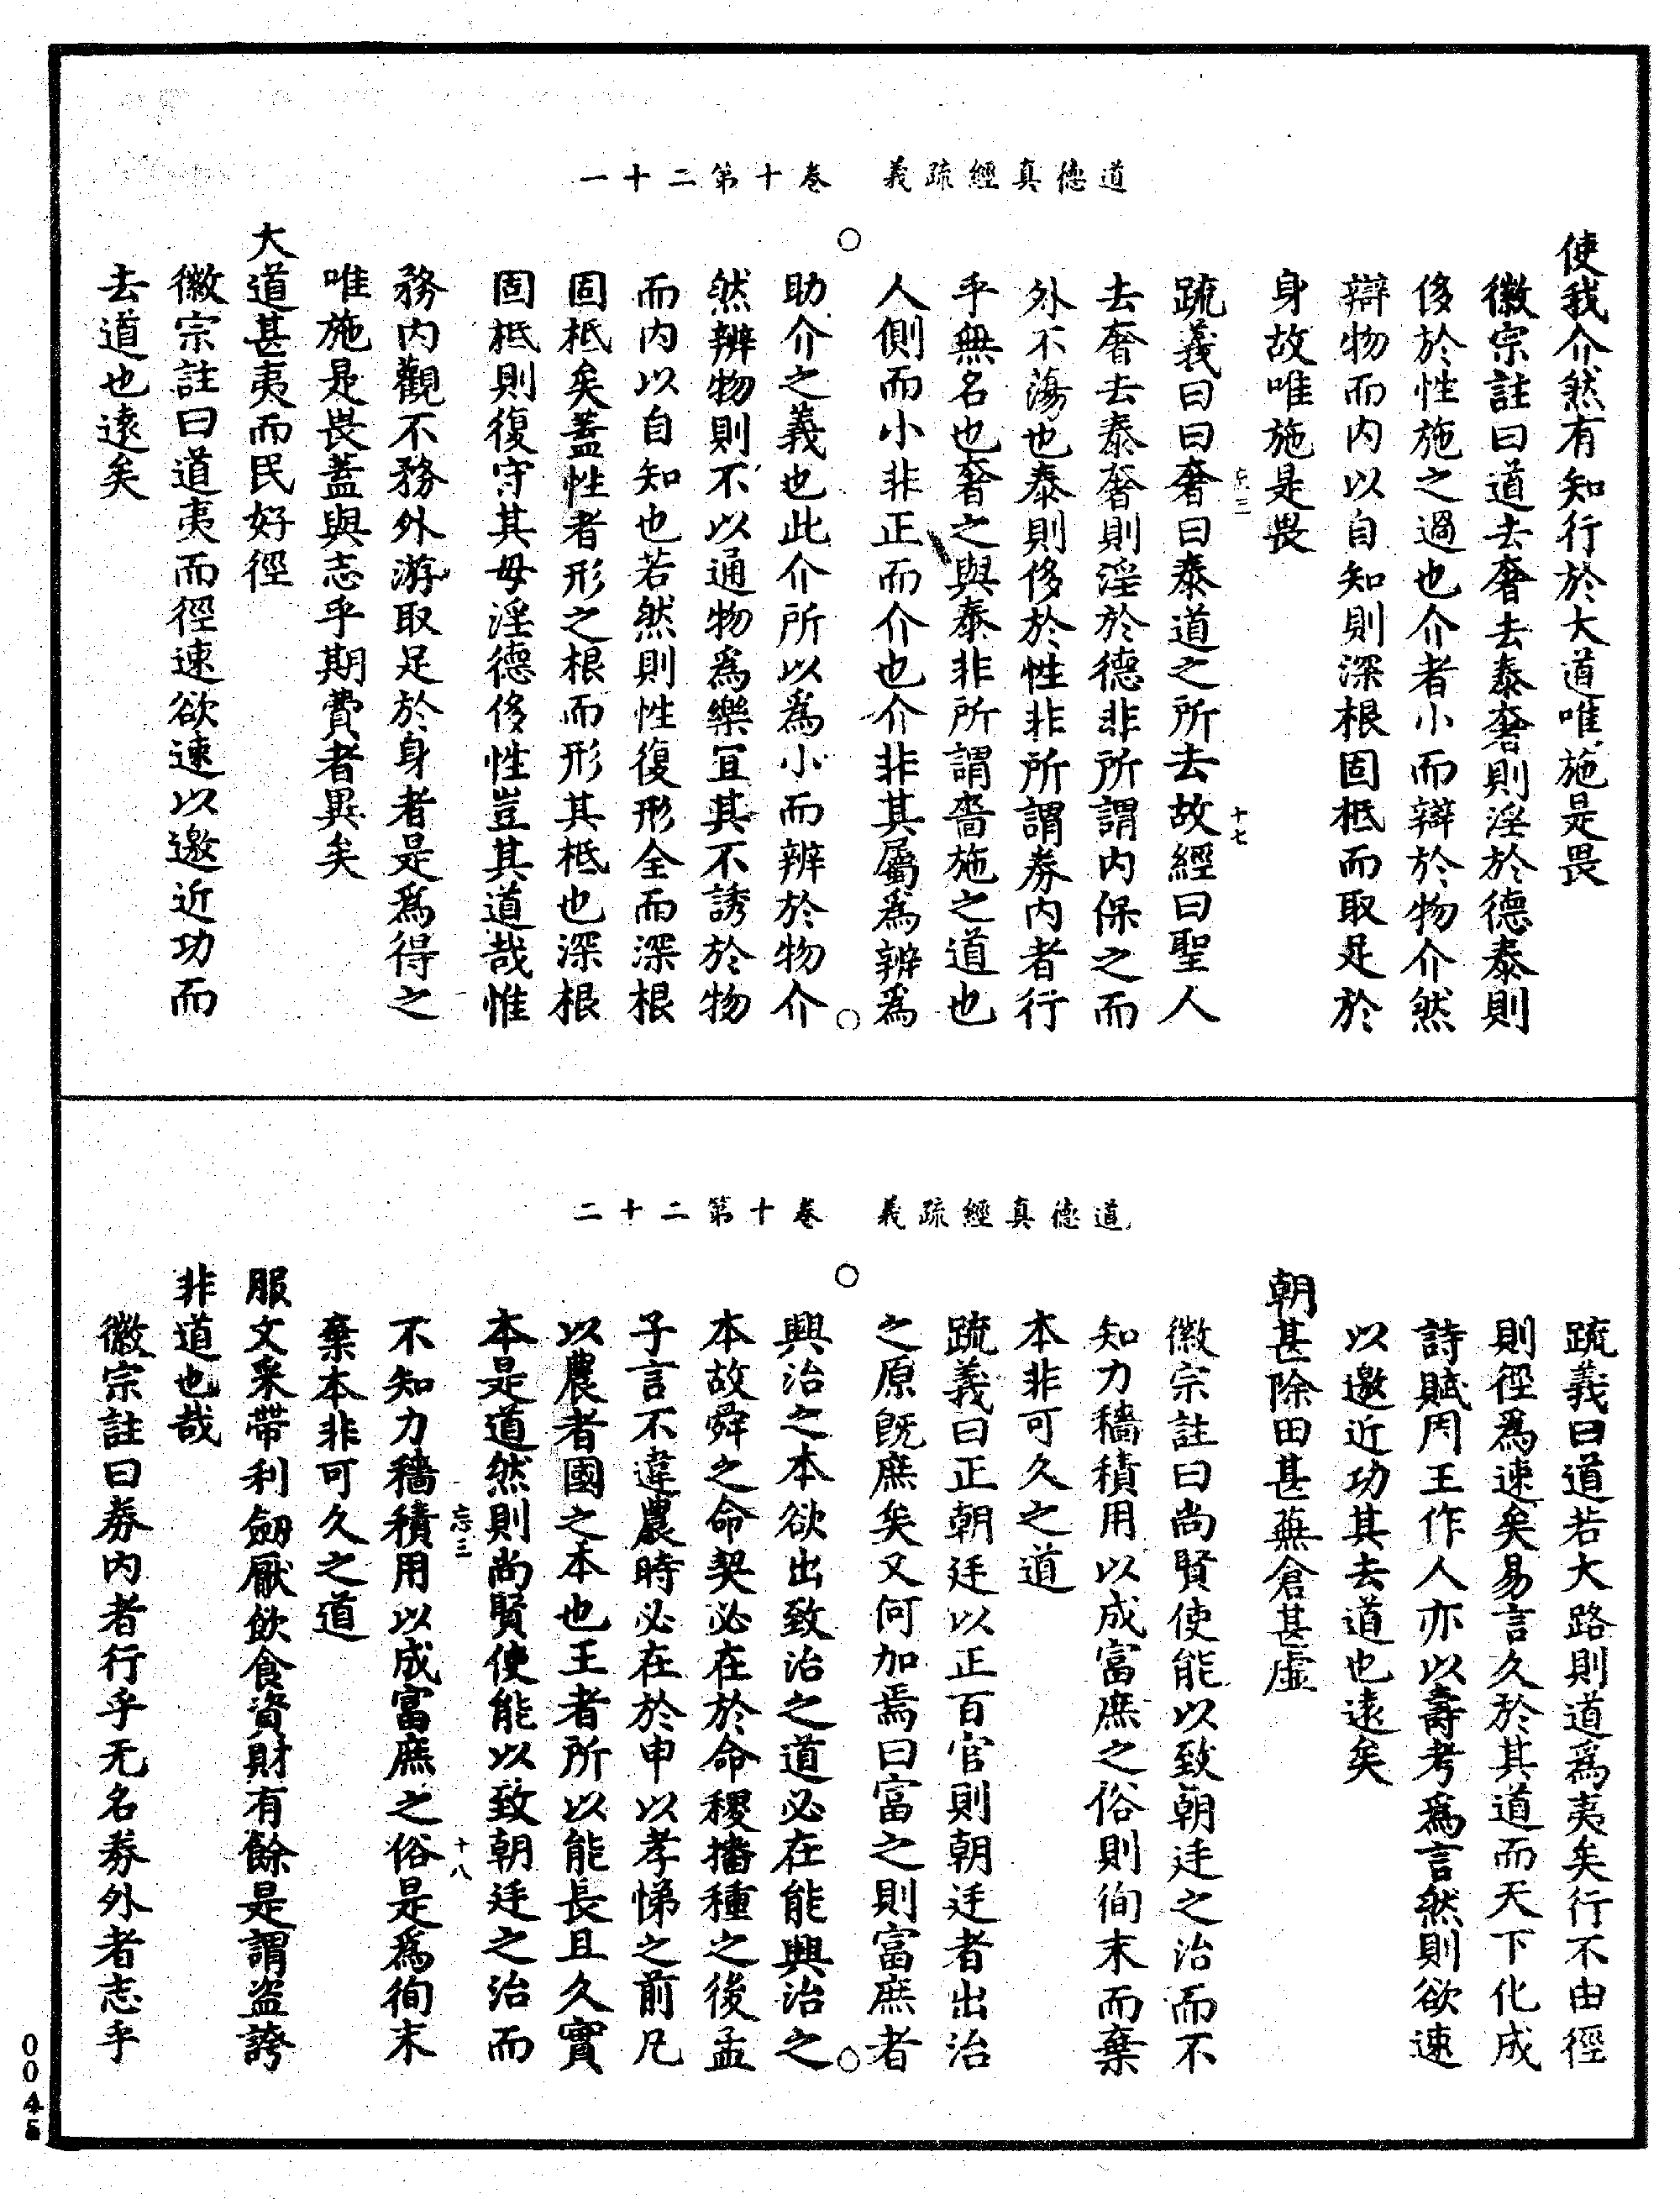 道德真經疏義　卷十第二十一
使我介然有知行於大道唯施是畏
徽宗註曰道去奢去泰奢則淫於德泰則
侈於性施之過也介者小而辯於物介然
辯物而内以自知則深根固柢而取足於
身故唯施是畏
疏義曰曰奢曰泰道之所去故經曰聖人
去奢去泰奢則淫於德非所謂内保之而
外不蕩也泰則侈於性非所謂券内者行
乎無名也奢之與泰非所謂嗇施之道也
人側而小非正而介也介非其屬爲辨爲
助介之義也此介所以爲小而辨於物介
然辨物則不以通物爲樂宜其不誘於物
而内以自知也若然則性復形全而深根
固柢矣蓋性者形之根而形其柢也深根
固柢則復守其母淫德侈性豈其道哉惟
務内觀不務外游取足於身者是爲得之
唯施是畏蓋與志乎期費者異矣
大道甚夷而民好徑
徽宗註曰道夷而徑速欲速以邀近功而
去道也遠矣
十七
道德真經疏義　卷十第二十二
疏義曰道若大路則道爲夷矣行不由徑
則徑爲速矣易言久於其道而天下化成
詩賦周王作人亦以壽考爲言然則欲速
以邀近功其去道也遠矣
朝甚除田甚蕪倉甚虛
徽宗註曰尚賢使能以致朝廷之治而不
知力穡積用以成富庶之俗則徇末而棄
本非可久之道
疏義曰正朝廷以正百官則朝廷者出治
之原既庶矣又何加焉曰富之則富庶者
興治之本欲出致治之道必在能興治之
本故舜之命契必在於命稷播種之後孟
子言不違農時必在於申以孝悌之前凡
以農者國之本也王者所以能長且久實
本是道然則尚賢使能以致朝廷之治而
忘三
十八
不知力穡積用以成富庶之俗是爲徇末
棄本非可久之道
服文采帶利劒厭飲食資財有餘是謂盜誇
非道也哉
徽宗註曰券内者行乎无名券外者志乎
0045